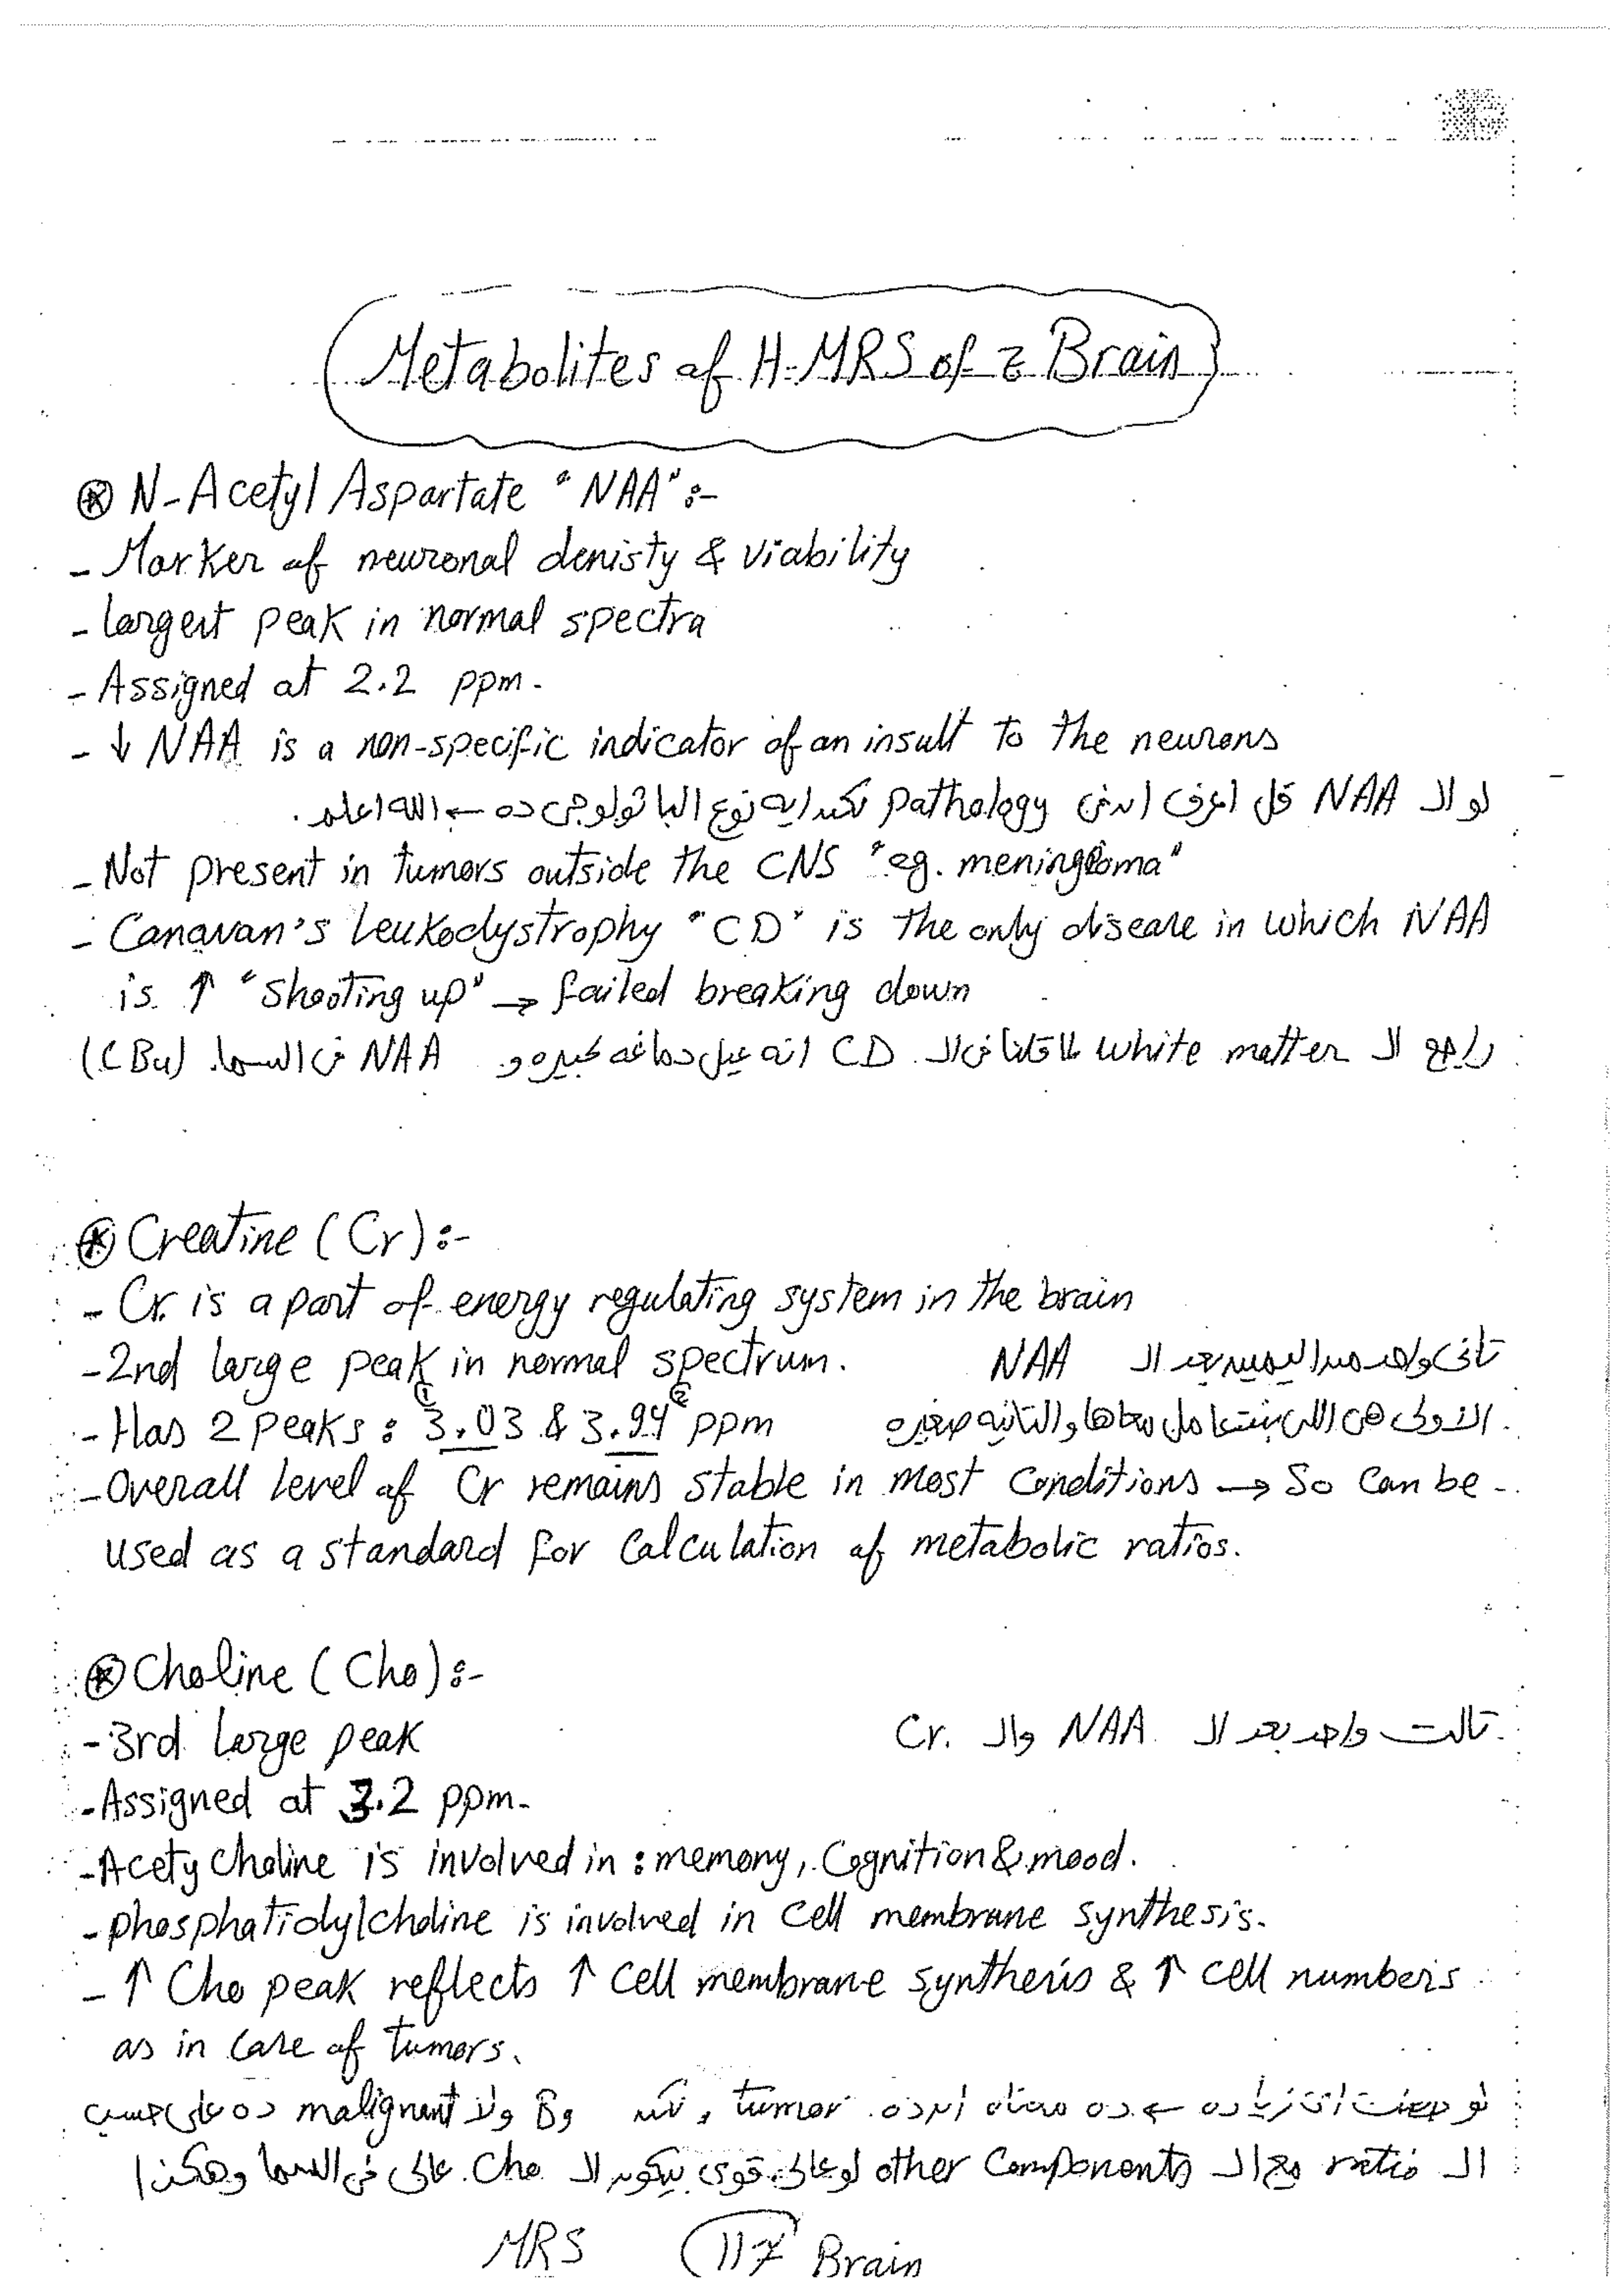 Metabolites of H-MRS of z Brain
⊛ N-Acetyl Aspartate "NAA" :-
- Marker of neuronal denisty & viability
- largest peak in normal spectra
- Assigned at 2.2 ppm.
- ↓ NAA is a non-specific indicator of an insult to the neurons
لو ال NAA قل اعرف ان في pathology لكن ايه نوع الباثولوجي ده ← الله اعلم.
- Not present in tumors outside the CNS "eg. meningioma"
- Canavan's leukodystrophy "CD" is the only disease in which NAA
is ↑ "shooting up" → failed breaking down
راجع ال white matter لما قلنا في ال CD انه عيل دماغه كبيره و NAA في السما. (CBu)
⊛ Creatine (Cr) :-
- Cr. is a part of energy regulating system in the brain
- 2nd large peak in normal spectrum. تاني واحد من اليمين بعد ال NAA
- Has 2 peaks : 3.03 ① & 3.94 ② ppm الاولى هي اللي بنتعامل معاها والتانيه صغيره.
- Overall level of Cr remains stable in most conditions → So can be
used as a standard for calculation of metabolic ratios.
⊛ Choline (Cho) :-
- 3rd large peak تالت واحد بعد ال NAA وال Cr.
- Assigned at 3.2 ppm.
- Acety choline is involved in : memory, Cognition & mood.
- phosphatidylcholine is involved in cell membrane synthesis.
- ↑ Cho peak reflects ↑ cell membrane synthesis & ↑ cell numbers
as in case of tumors.
لو زياده ← ده معناه ان ده tumor, لكن ولا malignant ده على حسب
ال ratio مع ال other components لو عالي قوي بيكون ال Cho عالي في السما وهكذا
MRS 117 Brain